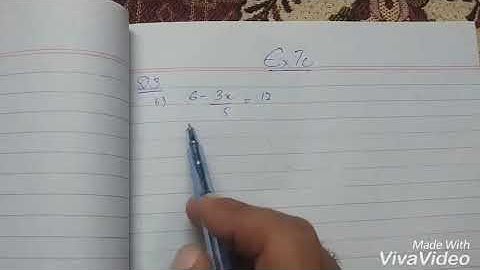 Ex 7c
Q.3
b) 6 - 3x/5 = 12
Made With
VivaVideo